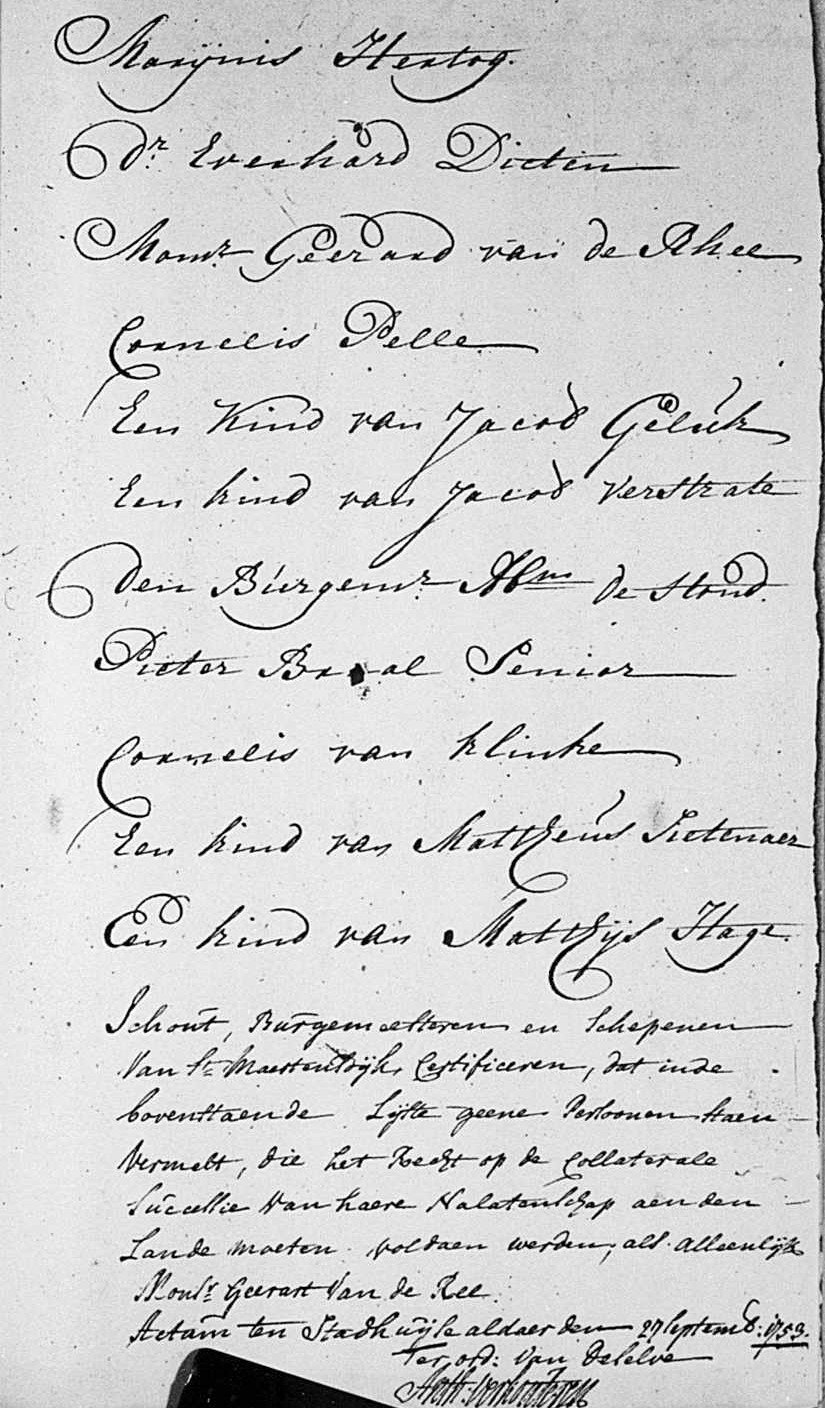 Marijnis Hertog.
Dr. Everhard Dieten
Monsr Geerard van de Rhee
Cornelis Pelle
Een Kind van Jacob Gelúk
Een kind van Jacob Verstrate
Den Búrgemr Abm de Stond.
Pieter Braal Senior
Cornelis van Klinke
Een kind van Mattheús
Een kind van Matthijs Hage.
Schoút, Búrgemeesteren en Schepenen
Van St. Maertensdijk, Certificeren, dat inde
bovenstaende Lijste geene Persoonen staen
Vermelt, die het Recht op de Collaterale
Súccessie Van haere Nalatenschap aen den
Lande moeten voldaen werden, als alleenlijk
Monsr. Geerart Van de Ree.
Actúm ten Stadhúijse aldaer den 27 Septemb: 1753.
Ter ord: van deselve